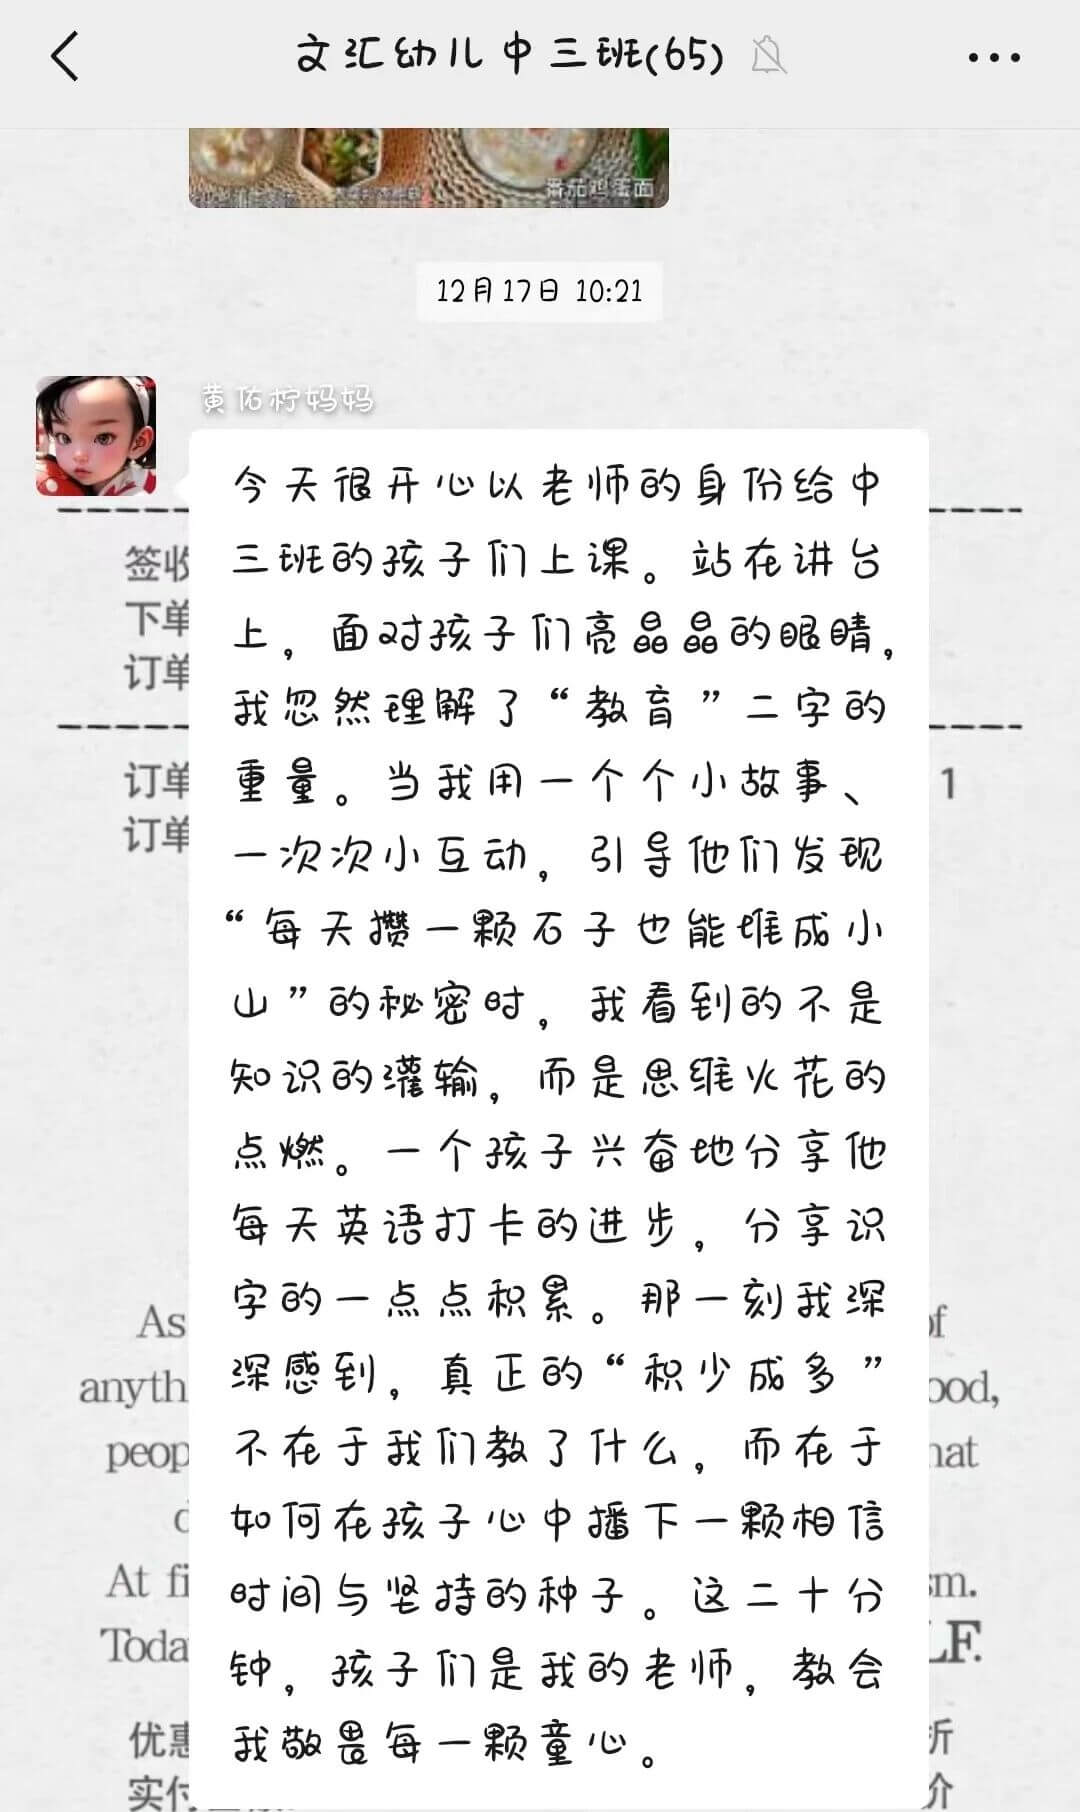 文汇幼儿中三班(65)
番茄鸡蛋面
12月17日 10:21
黄佑柠妈妈
今天很开心以老师的身份给中
三班的孩子们上课。站在讲台
上，面对孩子们亮晶晶的眼睛，
我忽然理解了“教育”二字的
重量。当我用一个个小故事、
一次次小互动，引导他们发现
“每天攒一颗石子也能堆成小
山”的秘密时，我看到的不是
知识的灌输，而是思维火花的
点燃。一个孩子兴奋地分享他
每天英语打卡的进步，分享识
字的一点点积累。那一刻我深
深感到，真正的“积少成多”
不在于我们教了什么，而在于
如何在孩子心中播下一颗相信
时间与坚持的种子。这二十分
钟，孩子们是我的老师，教会
我敬畏每一颗童心。
签收
下单
订单
订单 1
订单
As of
anyth ood,
peop hat
d
At fi sm.
Toda LF.
优惠 折
实付 价